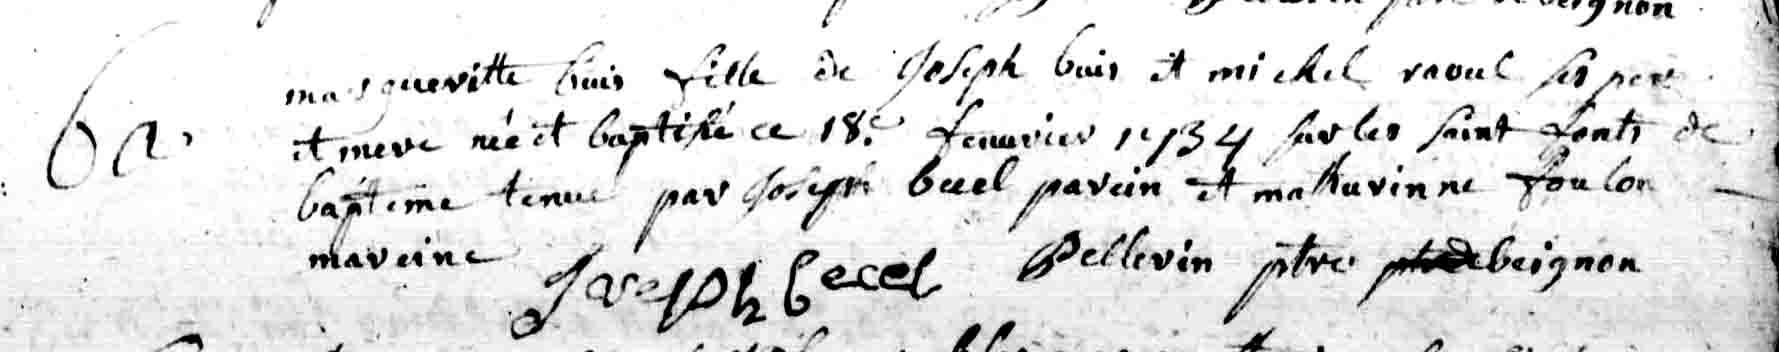 beignon
Ba
margueritte buis fille de Joseph buis et michel raoul ses pere
et mere née et baptisé ce 18e feuvrier 1734 sur les saint fonts de
bapteme tenue par Joseph becel parein et mathurinne foulon
mareine Joseph becel Pellerin ptre de beignon